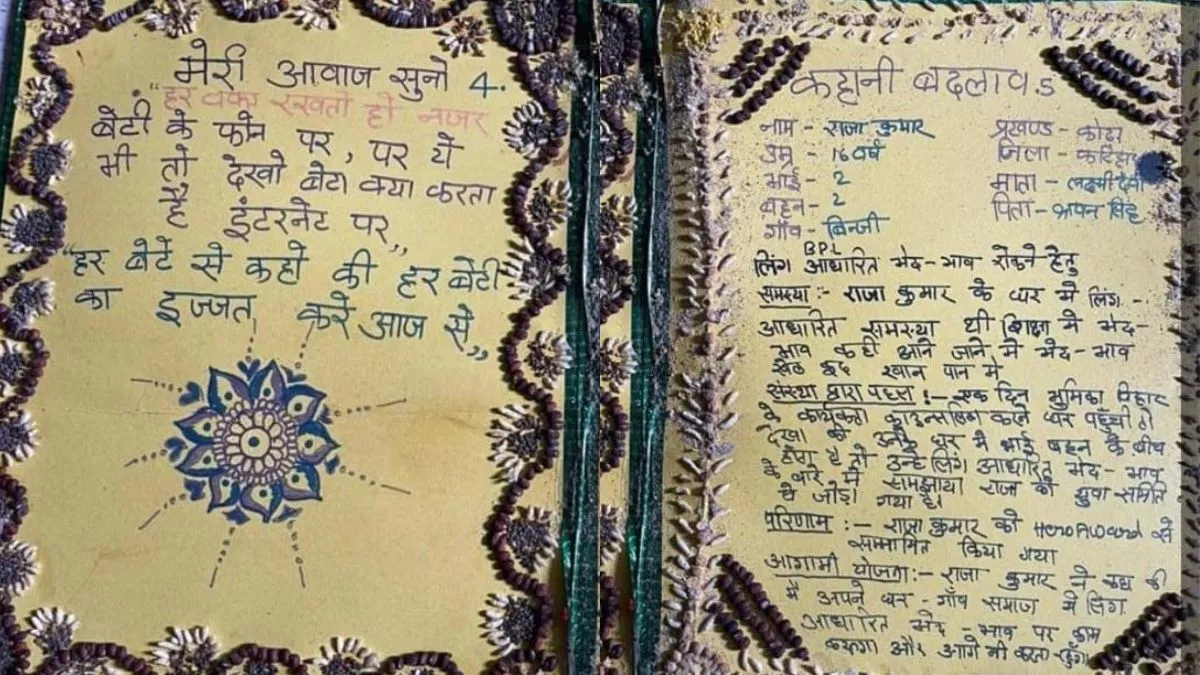 मेरी आवाज सुनो 4.
"हर वक्त रखतो हो नजर
बेटी के फोन पर, पर ये
भी तो देखो बेटा क्या करता
है इंटरनेट पर"
"हर बेटे से कहो की हर बेटी
का इज्जत करे आज से"
कहानी बदलाव 5
नाम - राजा कुमार
उम्र - 16 वर्ष
भाई - 2
बहन - 2
गाँव - बिन्जी
प्रखण्ड - कोढ़ा
जिला - कटिहार
माता - लक्ष्मी देवी
पिता - सिंह
BPL
लिंग आधारित भेद-भाव रोकने हेतु
समस्या :- राजा कुमार के घर में लिंग -
आधारित समस्या थी शिक्षा में भेद-
भाव कही आने जाने में भेद-भाव
खेल कूद खान पान में
संस्था द्वारा पहल :- एक दिन भुमिका विहार
के कार्यकर्ता काउन्सलिंग करने घर पहुँची तो
देखा की उनके घर में भाई बहन के बीच
के होता है तो उन्हें लिंग आधारित भेद-भाव
के बारे में समझाया राजा को युवा समिति
से जोड़ा गया है।
परिणाम :- राजा कुमार को Hero Award से
सम्मानित किया गया
आगामी योजना :- राजा कुमार ने कहा की
मैं अपने घर-गाँव समाज में लिंग
आधारित भेद-भाव पर काम
करूगा और आगे भी करता रहूँगा